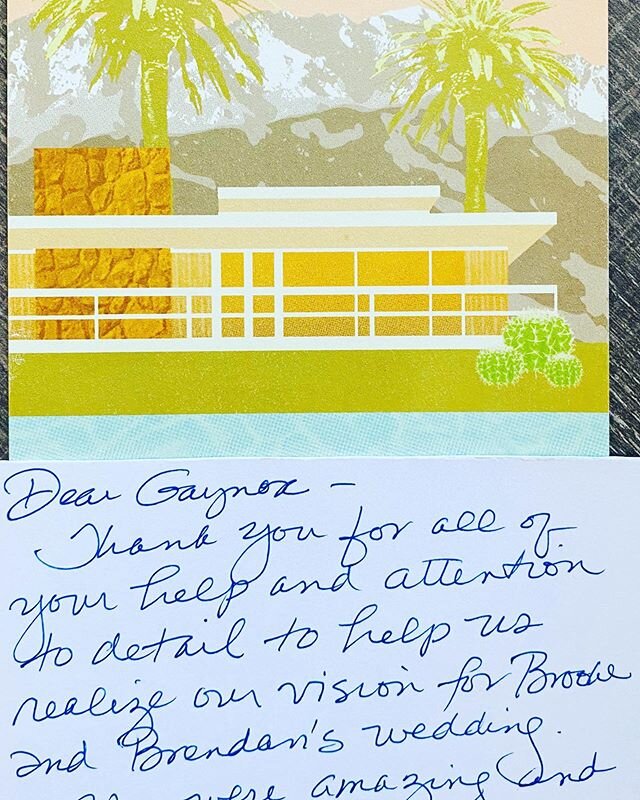 Dear Gaynor -
Thank you for all of
your help and attention
to detail to help us
realize our vision for Brooke
and Brendan's wedding.
were amazing and